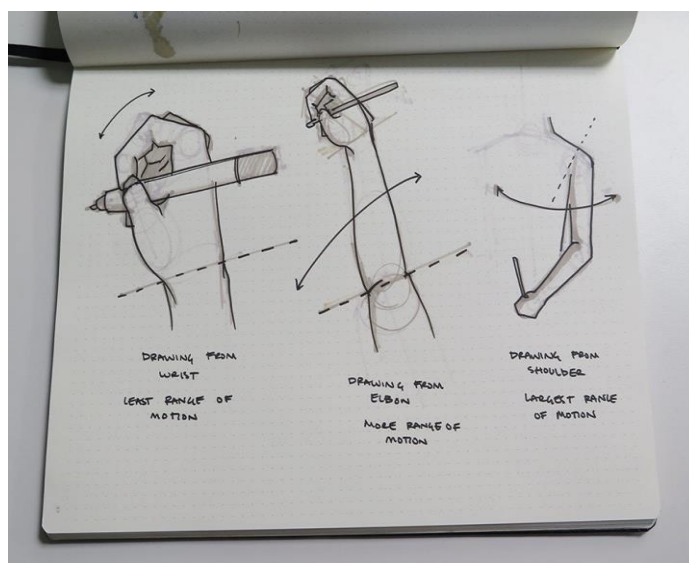 DRAWING FROM
WRIST
LEAST RANGE OF
MOTION
DRAWING FROM
ELBOW
MORE RANGE OF
MOTION
DRAWING FROM
SHOULDER
LARGEST RANGE
OF MOTION